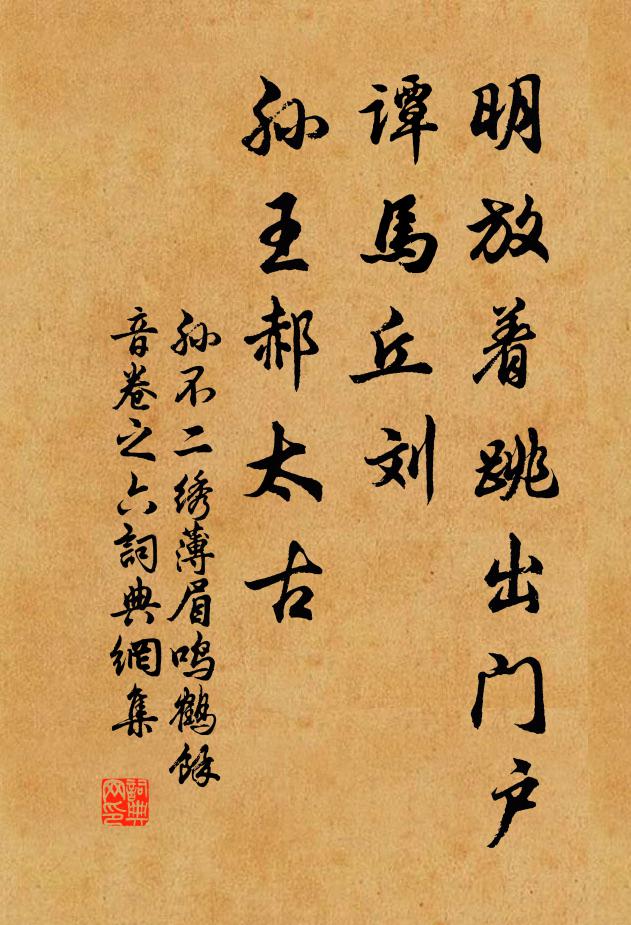 明放着跳出门户
谭馬丘刘
孙王郝太古
孙不二绣薄眉鸣鶴馀
音卷之六詞典網集
詞典网印